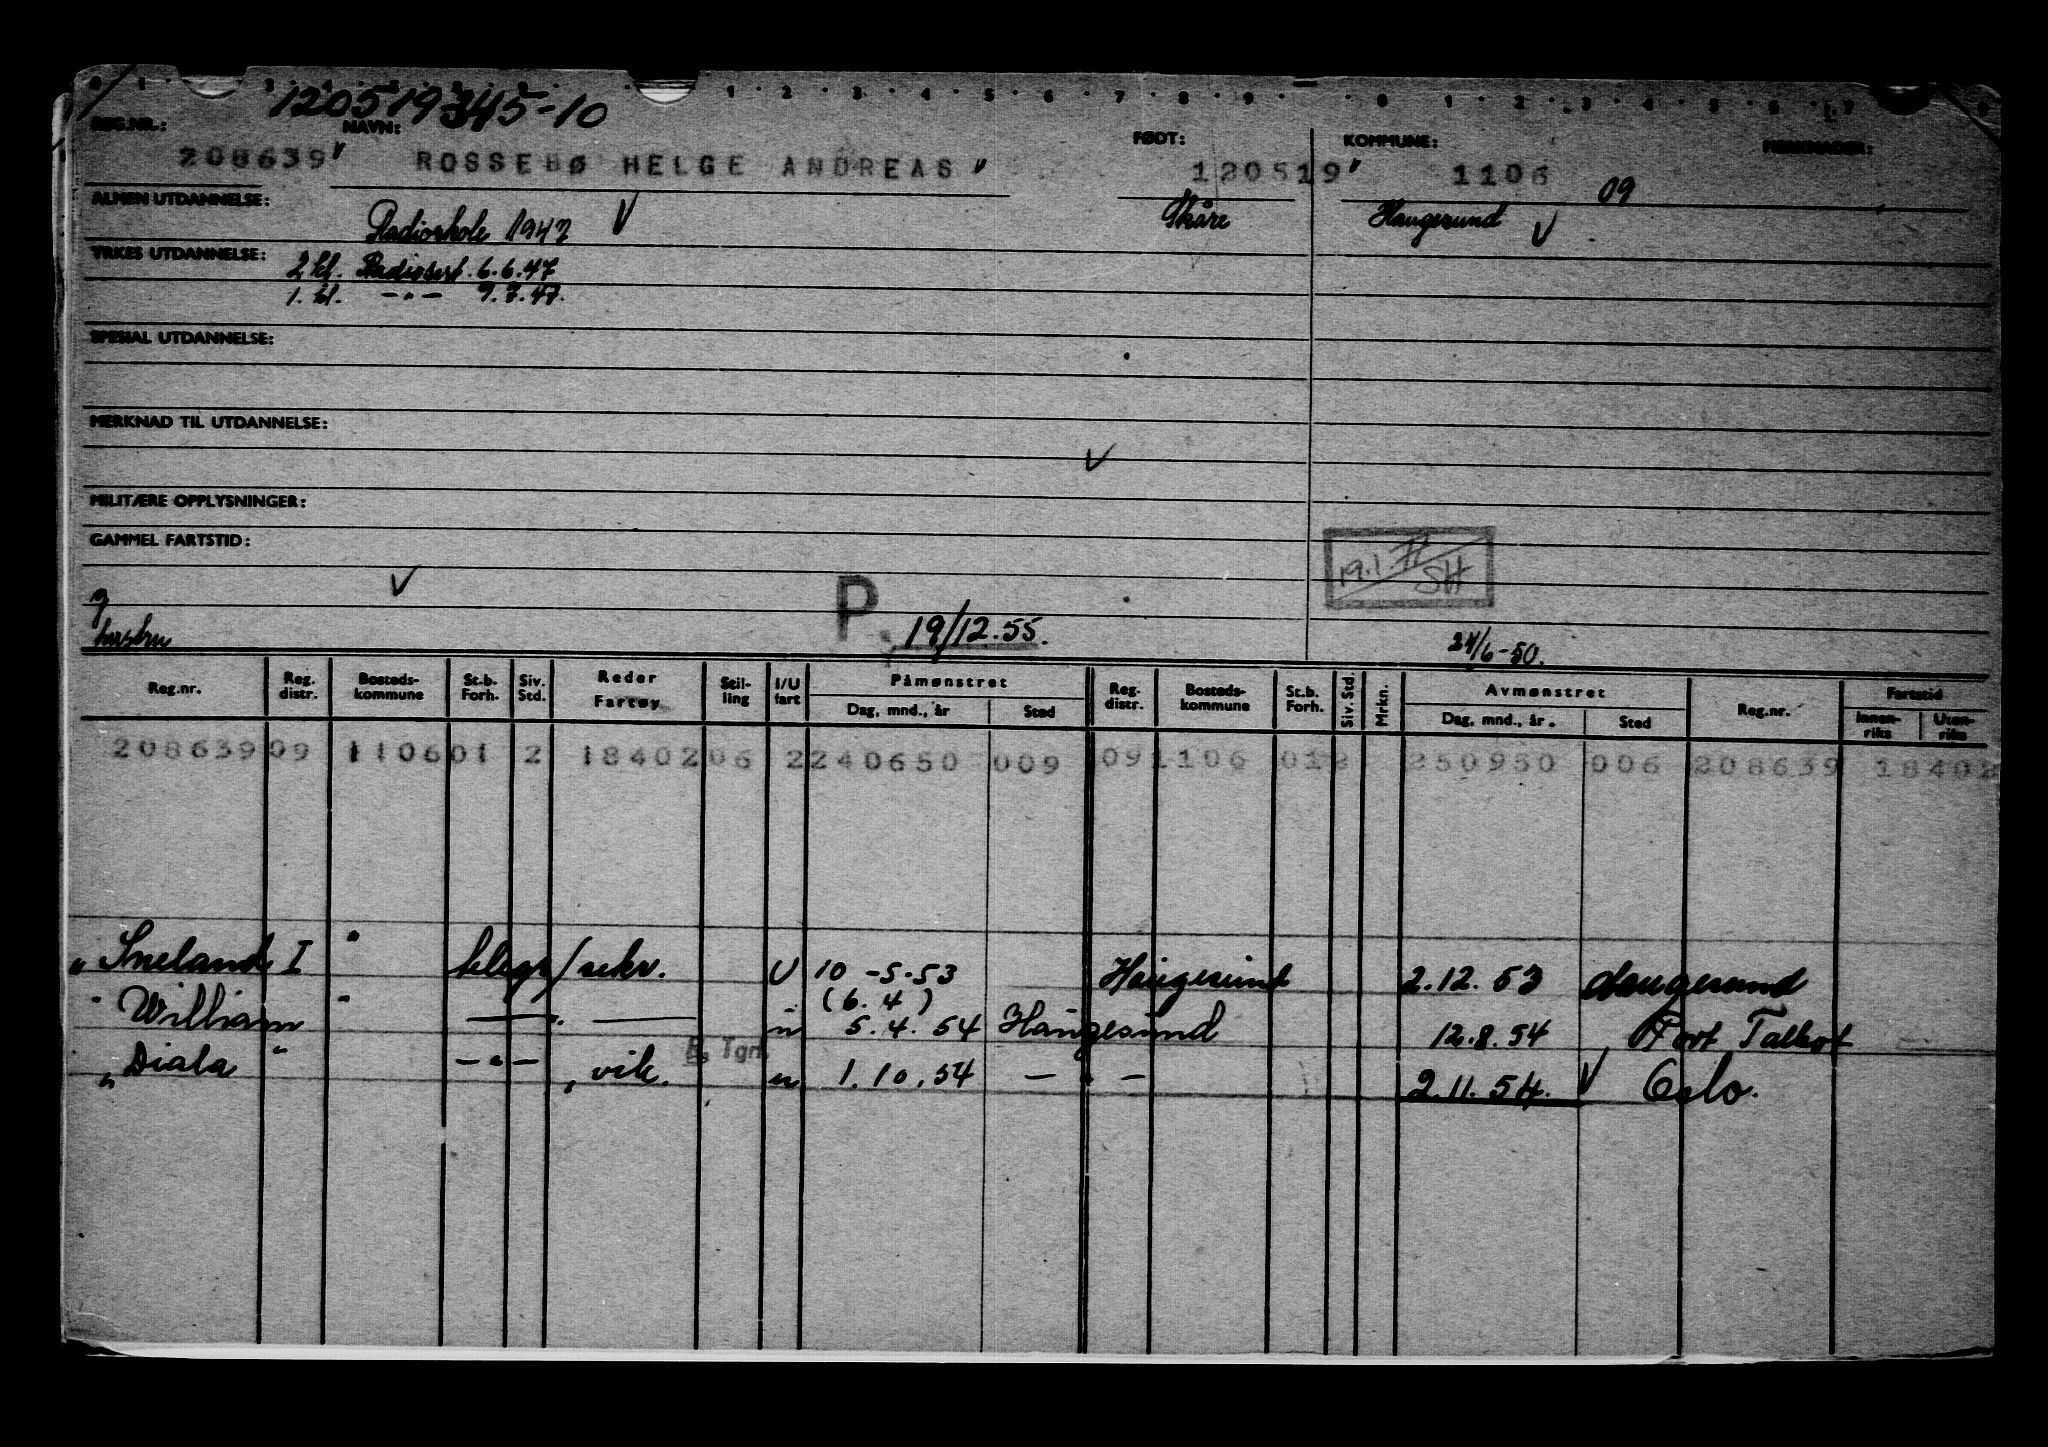 120519345-10
REG.NR.: NAVN: FØDT: KOMMUNE: MERKNADER:
208639 ROSSEBØ HELGE ANDREAS 120519 1106 09
ALMEN UTDANNELSE: Radioskole 1947 Skåre Haugesund
YRKES UTDANNELSE: 2 kl. Radiosert. 6.6.47
1. kl. -"- 9.7.47.
SPESIAL UTDANNELSE:
MERKNAD TIL UTDANNELSE:
MILITÆRE OPPLYSNINGER:
GAMMEL FARTSTID:
19.1. SH
g
hustru P. 19/12.55. 24/6-50.
Reg.nr. Reg. distr. Bosteds-kommune St.b. Forh. Siv. Std. Reder Fartøy Stil-ling I/U fart Påmønstret Dag, mnd., år Sted Reg. distr. Bosteds-kommune St.b. Forh. Siv. Std. Mrkn. Avmønstret Dag, mnd., år. Sted Reg.nr. Fartstid Innen-riks Uten-riks
208639 09 1106 01 2 18402 06 2 240650 009 09 1106 01 2 250950 006 208639 18402
" Sneland I " telegr/sekr. U 10-5-53 Haugesund 2.12.53 Haugesund
(6.4)
" William " — . — u 5.4.54 Haugesund 12.8.54 Port Talbot
" Diala " -"- , vik. E. Tgrf. u 1.10.54 -"- 2.11.54. Oslo.